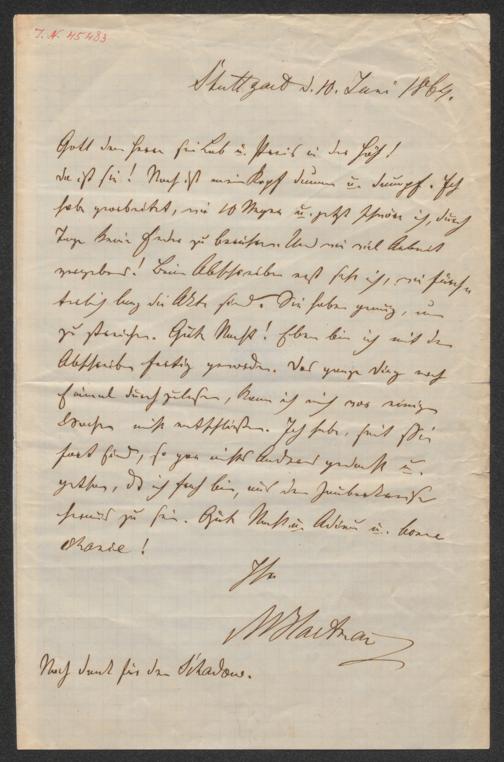 J. N. 45483
Stuttgart d. 10. Juni 1864.
Gott dem Herrn sei Lob u. Preis in der Höh!
Da ist sie! Noch ist mein Kopf dumm u. dumpf. Ich
habe gearbeitet, wie 10 Neger u. jetzt schwöre ich, durch
Tage keine Feder zu berühren. Und wie viel Arbeit
vergebens! Beim Abschreiben erst sehe ich, wie fürch-
terlich lang die Akte sind. Sie haben genug, um
zu streichen. Gute Nacht! Eben bin ich mit dem
Abschreiben fertig geworden. Das ganze Ding noch
einmal durchzulesen, kann ich mich vor einigen
Wochen nicht entschließen. Ich habe, seit Sie
fort sind, so gar nichts Anderes gedacht u.
gethan, daß ich froh bin, aus dem Zauberkreise
heraus zu sein. Gute Nacht u. Adieu u. bonne
chance!
Ihr
MHartmann
Noch Dank für den Schadow.